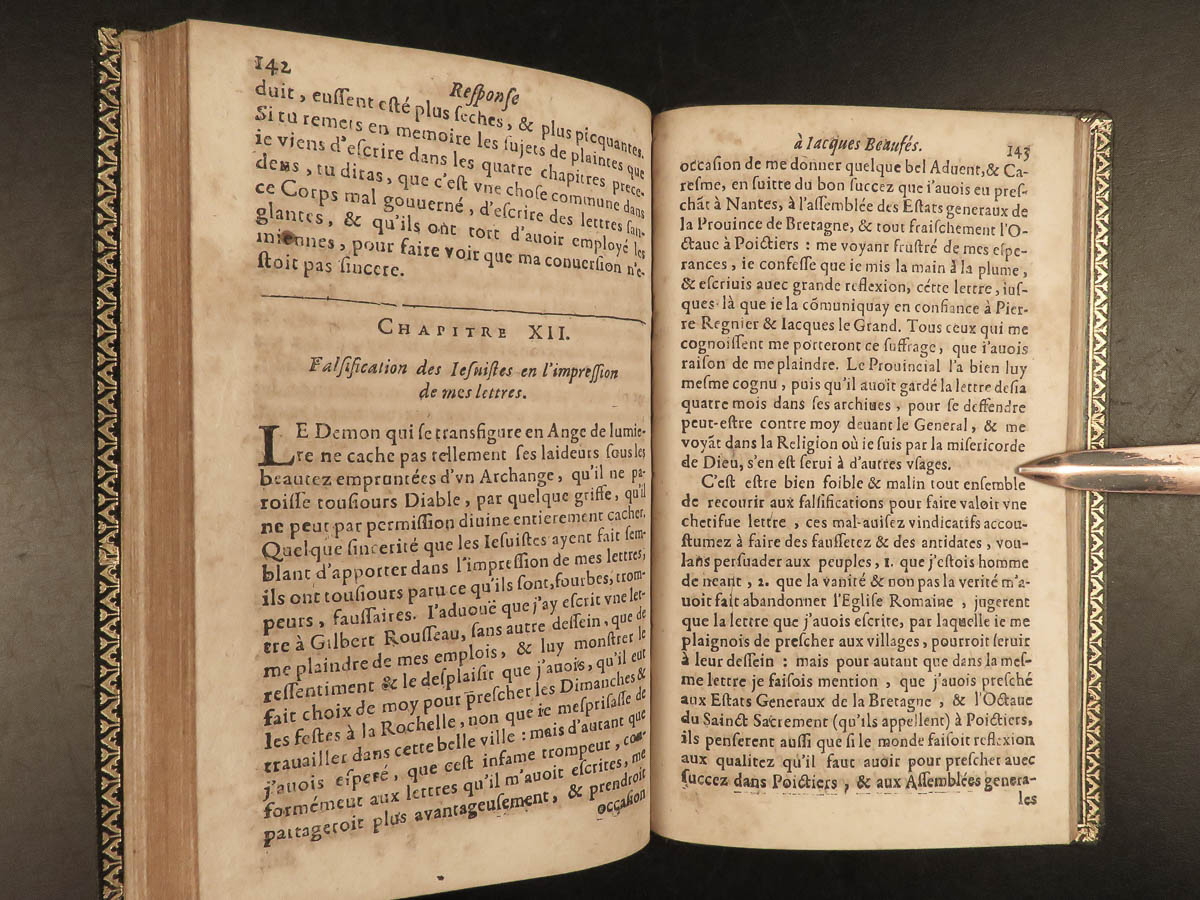 142
Response
duit, eussent esté plus seches, & plus picquantes.
Si tu remets en memoire les sujets de plaintes que
ie viens d'escrire dans les quatre chapitres prece-
dens, tu diras, que c'est vne chose commune dans
ce Corps mal gouuerné, d'escrire des lettres san-
glantes, & qu'ils ont tort d'auoir employé les
miennes, pour faire voir que ma conuersion n'e-
stoit pas sincere.
CHAPITRE XII.
Falsification des Iesuistes en l'impression
de mes lettres.
LE Demon qui se transfigure en Ange de lumie-
re ne cache pas tellement ses laideurs sous les
beautez empruntées d'vn Archange, qu'il ne pa-
roisse tousiours Diable, par quelque griffe, qu'il
ne peut par permission diuine entierement cacher.
Quelque sincerité que les Iesuistes ayent fait sem-
blant d'apporter dans l'impression de mes lettres,
ils ont tousiours paru ce qu'ils sont, fourbes, trom-
peurs, faussaires. I'aduouë que j'ay escrit vne let-
tre à Gilbert Rousseau, sans autre dessein, que de
me plaindre de mes emplois, & luy monstrer le
ressentiment & le desplaisir que j'auois, qu'il eut
fait choix de moy pour prescher les Dimanches &
les festes à la Rochelle, non que ie mesprisasse de
trauailler dans cette belle ville : mais d'autant que
j'auois esperé, que cest infame trompeur, con-
formémeut aux lettres qu'il m'auoit escrites, me
partageroit plus avantageusement, & prendroit
occasion
à Iacques Beaufés.
143
occasion de me donner quelque bel Aduent, & Ca-
resme, en suitte du bon succez que i'auois eu pres-
chãt à Nantes, à l'assemblée des Estats generaux de
la Prouince de Bretagne, & tout fraischement l'O-
ctaue à Poictiers : me voyant frustré de mes espe-
rances, ie confesse que ie mis la main à la plume,
& escriuis auec grande reflexion, cette lettre, ius-
ques là que ie la cõmuniquay en confiance à Pier-
re Regnier & Iacques le Grand. Tous ceux qui me
cognoissent me porteront ce suffrage, que i'auois
raison de me plaindre. Le Prouincial l'a bien luy
mesme cognu, puis qu'il auoit gardé la lettre desia
quatre mois dans ses archiues, pour se deffendre
peut-estre contre moy deuant le General, & me
voyãt dans la Religion où ie suis par la misericorde
de Dieu, s'en est serui à d'autres vsages.
C'est estre bien foible & malin tout ensemble
de recourir aux falsifications pour faire valoir vne
chetifue lettre, ces mal-auisez vindicatifs accou-
stumez à faire des faussetez & des antidates, vou-
lans persuader aux peuples, 1. que j'estois homme
de neant, 2. que la vanité & non pas la verité m'a-
uoit fait abandonner l'Eglise Romaine, jugerent
que la lettre que j'auois escrite, par laquelle ie me
plaignois de prescher aux villages, pourroit seruir
à leur dessein : mais pour autant que dans la mes-
me lettre je faisois mention, que j'auois presché
aux Estats Generaux de la Bretagne, & l'Octaue
du Sainct Sacrement (qu'ils appellent) à Poictiers,
ils penserent aussi que si le monde faisoit reflexion
aux qualitez qu'il faut auoir pour prescher auec
succez dans Poictiers, & aux Assemblées genera-
les